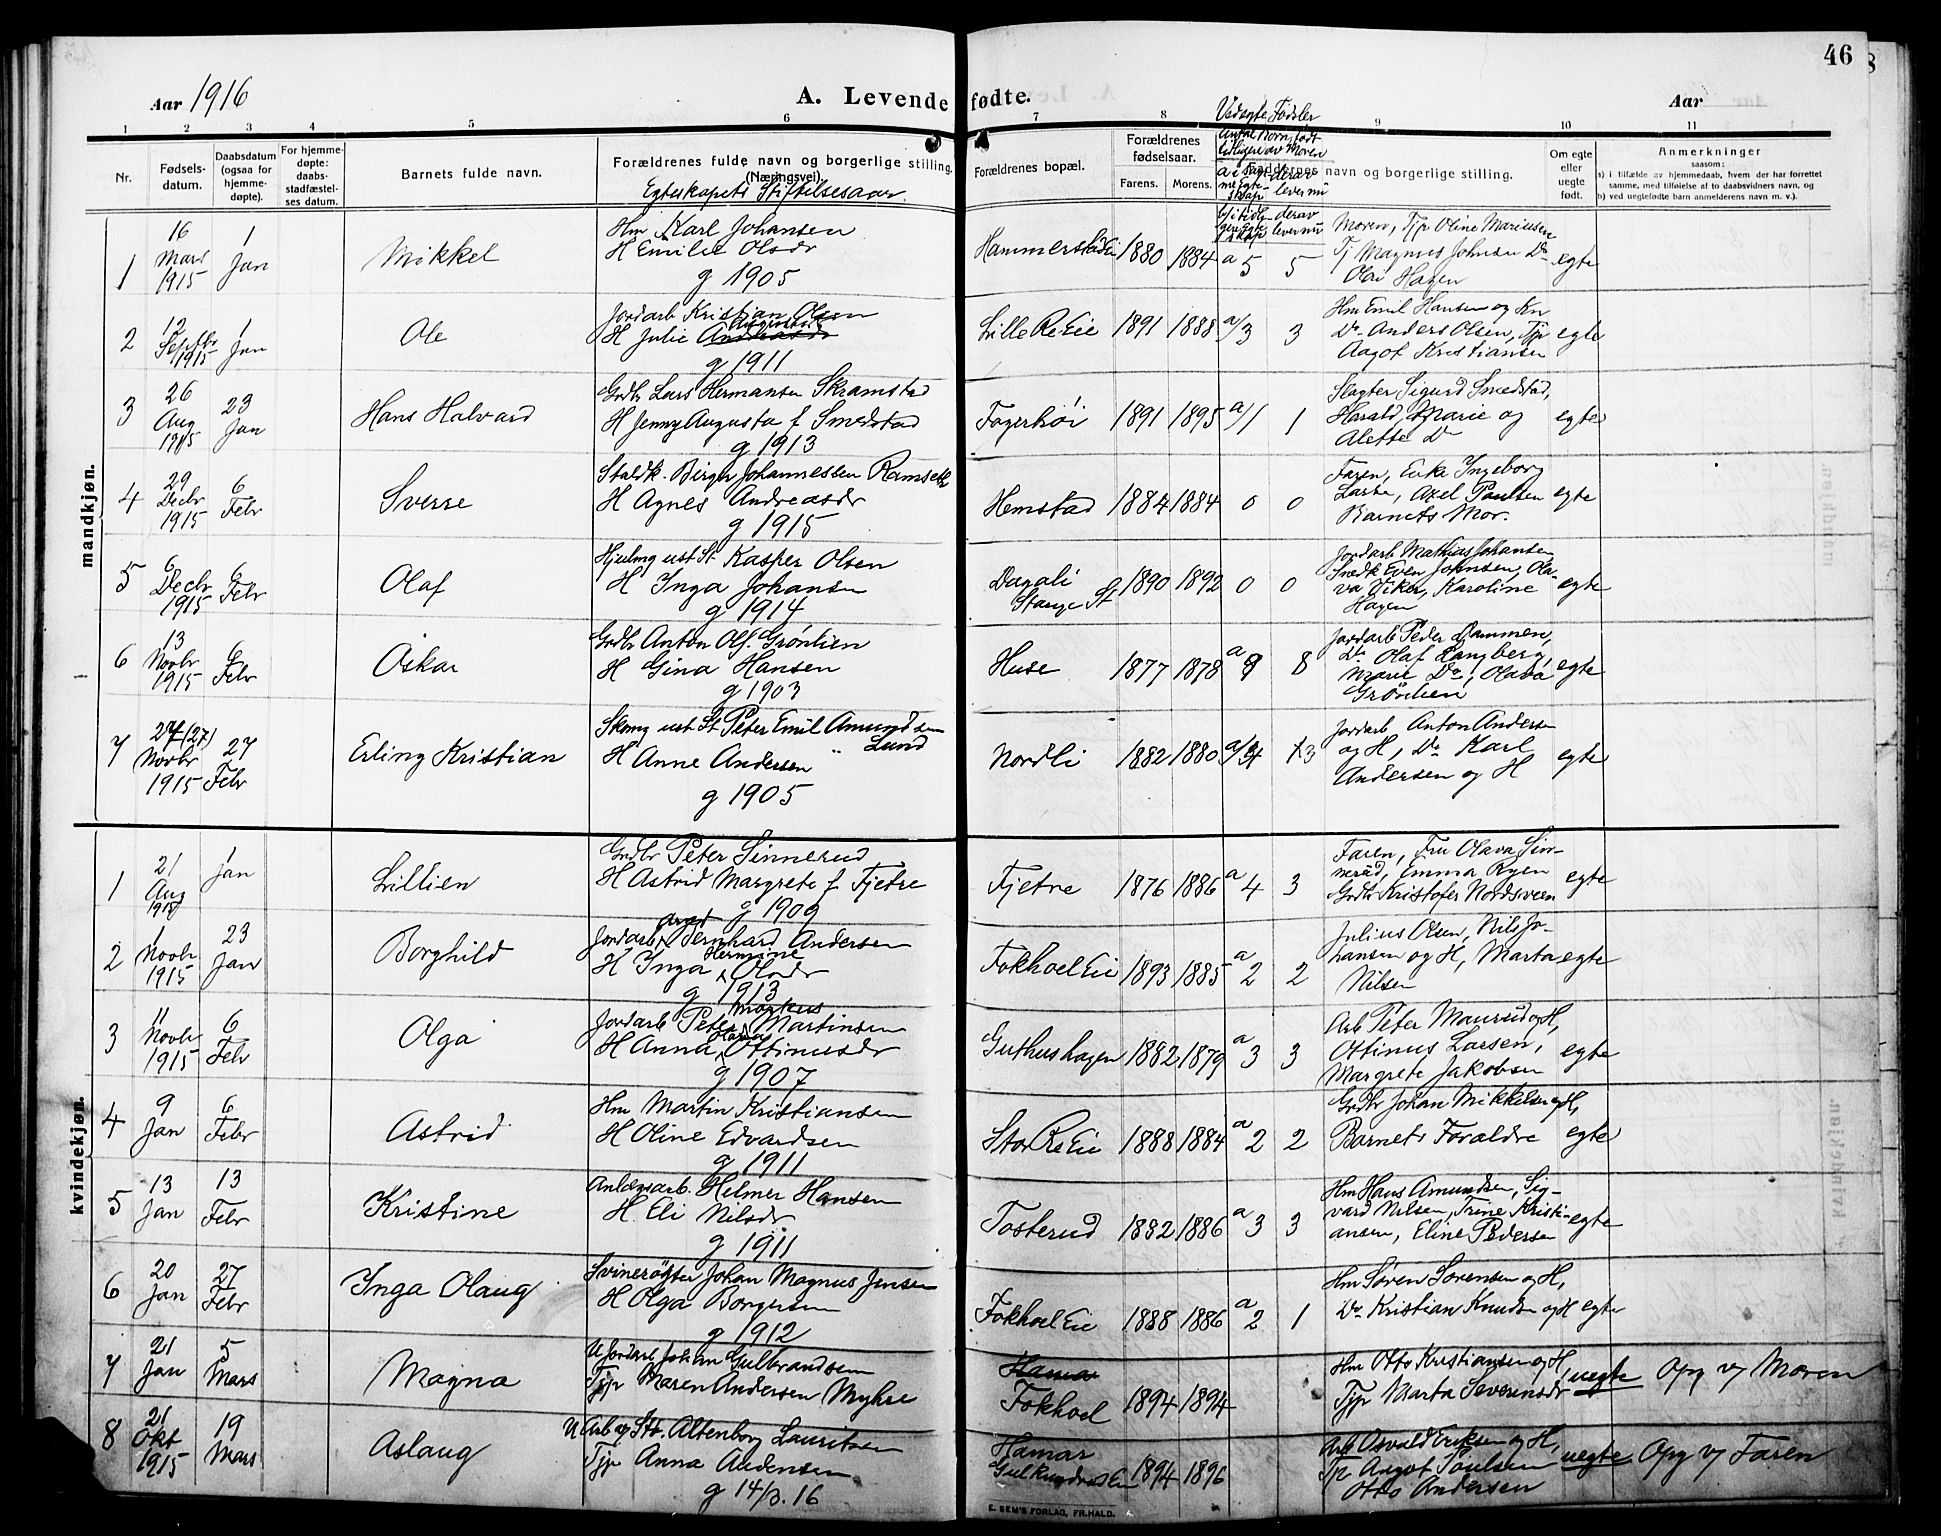 46
Aar 1916
A. Levende fødte.
Aar
1 2 3 4 5 6 7 8 9 10 11
Nr.
Fødsels-
datum.
Daabsdatum
(ogsaa for
hjemme-
døpte).
For hjemme-
døpte:
daabs-
stadfæstel-
ses datum.
Barnets fulde navn.
Forældrenes fulde navn og borgerlige stilling.
(Næringsvei).
Egteskapets Stiftelsesaar.
Forældrenes bopæl.
Forældrenes
fødselsaar.
Farens. Morens.
Vedegte Fødsler
Antal Børn født
tidligere av Moren
Faddernes navn og borgerlige stilling.
Om egte
eller
uegte
født.
Anmerkninger
saasom:
a) i tilfælde av hjemmedaab, hvem der har forrettet
samme, med tilføielse af to daabsvidners navn, og
b) ved uegtefødte barn anmelderens navn m. v.).
mandkjøn.
1 16 Mars 1915 1 Jan Mikkel Hm Karl Johansen
H Emilie Olsdr
g 1905 Hammerstad Eie 1880 1884 a 5 5 Moren, Tjp Oline Mariusen
Tj Magnus Johnsen Do
Olai Hagen egte
2 12 Septbr 1915 1 Jan Ole Jordarb Kristian Olsen
H Julie Augustsdr
g 1911 Lille Re Eie 1891 1888 a/3 3 Hm Emil Hansen og Kn
Do Anders Olsen, Tjp
Aagot Kristiansen egte
3 26 Aug 1915 23 Jan Hans Halvard Grdbr Lars Hermansen Skramstad
H Jenny Augusta f Smedstad
g 1913 Fagerhøi 1891 1895 a/1 1 Slagter Sigurd Smedstad,
Harald, Marie og
Alette Do egte
4 29 Decbr 1915 6 Febr Sverre Staldk. Birger Johannessen Ramseth
H Agnes Andreasdr
g 1915 Hemstad 1884 1884 0 0 Faren, Enke Ingeborg
Larsen, Axel Paulsen
Barnets Mor. egte
5 6 Decbr 1915 6 Febr Olaf Hjulmg ust St Kasper Olsen
H Inga Johansen
g 1914 Dagali
Stange St 1890 1892 0 0 Jordarb Mathias Johansen
Snedk Even Johnsen, Ola-
va Viker, Karoline
Hagen egte
6 13 Novbr 1915 6 Febr Oskar Grdbr Anton Olf. Grönlien
H Gina Hansen
g 1903 Huse 1877 1878 a 8 8 Jordarb Peder Dammen,
Do Olaf Langberg,
Marie Do, Olava
Grönlien egte
7 24 (27) Novbr 1915 27 Febr Erling Kristian Skomg ust St Peter Emil Amundsen
Lund
H Anne Andersen
g 1905 Nordli 1882 1880 a/4 3 Jordarb Anton Andersen
og H, Do Karl
Andersen og H egte
kvindekjøn.
1 21 Aug 1915 1 Jan Lillien Grdbr Peter Sinnerud
H Astrid Margrete f Tjetre
g 1909 Tjetre 1876 1886 a 4 3 Faren, Fru Olava Sin-
nerud, Emma Ryen
Grdb Kristofer Nordsveen egte
2 1 Novbr 1915 23 Jan Borghild Jordarb Bernhard Andersen
H Inga Hermine Olsdr
g 1913 Fokhoel Eie 1893 1885 a 2 2 Julius Olsen, Nils Jo-
hansen og H, Marta
Nilsen egte
3 11 Novbr 1915 6 Febr Olga Jordarb Peter Markus Martinsen
H Anna Ottinusdr
g 1907 Guthushagen 1882 1879 a 3 3 Arb Peter Maurud og H,
Ottinus Larsen,
Margrete Jakobsen egte
4 9 Jan 6 Febr Astrid Hm Martin Kristiansen
H Oline Edvardsen
g 1911 Stor Re Eie 1888 1884 a 2 2 Grdbr Johan Mikkelsen og H,
Barnets Foraldre egte
5 13 Jan 13 Febr Kristine Anlægsarb. Helmer Hansen
H. Eli Nilsdr
g 1911 Tosterud 1882 1886 a 3 3 Hm Hans Amundsen, Sig-
vard Nilsen, Trine Kristi-
ansen, Eline Pedersen egte
6 20 Jan 27 Febr Inga Olaug Svinerögter Johan Magnus Jensen
H Olga Borgersen
g 1912 Fokhoel Eie 1888 1886 a 2 1 Hm Søren Sørensen og H,
Do Kristian Knudsen og H egte
7 21 Jan 5 Mars Magna U Jordarb Johan Gulbrandsen
Tjp Maren Andersen Myhre Hamar
Fokhoel 1894 1894 Hm Otto Kristiansen og H,
Tjp Marta Severinsdr uegte Opg v/ Moren
8 21 Okt 1915 19 Mars Aslaug U Arb v/ St. Altenborg Lauritsen
Tjp Anna Andersen
g 14/3. 16 Hamar
1894 1896 Arb Osvald Eriksen og H,
Tjp Aagot Paulsen
Otto Andersen uegte Opg v/ Faren
E. SEM'S FORLAG, FR.HALD.